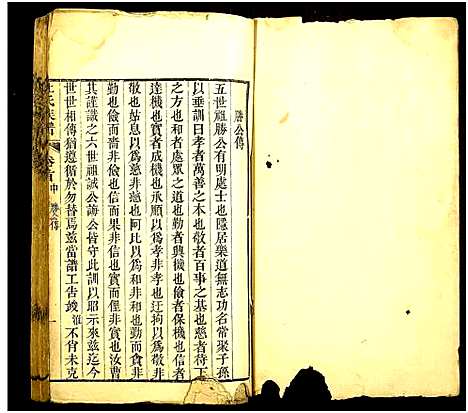 勝公傳
五世祖勝公有明處士也隱居樂道無志功名常聚子孫
以垂訓曰孝者萬善之本也敬者百事之基也慈者待下
之方也和者處眾之道也勤者興機也儉者保機也信者
達機也實者成機也承順以為孝非孝也迂拘以為敬非
敬也姑息以為慈非慈也阿比以為和非和也奔競非
勤也儉而嗇非儉也信而果非信也徑情非實也汝曹
其謹識之六世祖誠公誨公皆守此訓以昭示來茲迄今
世世相傳猶遵循於勿替焉茲當譜工告竣淮不肖未克
氏族譜
卷首中
傳
一